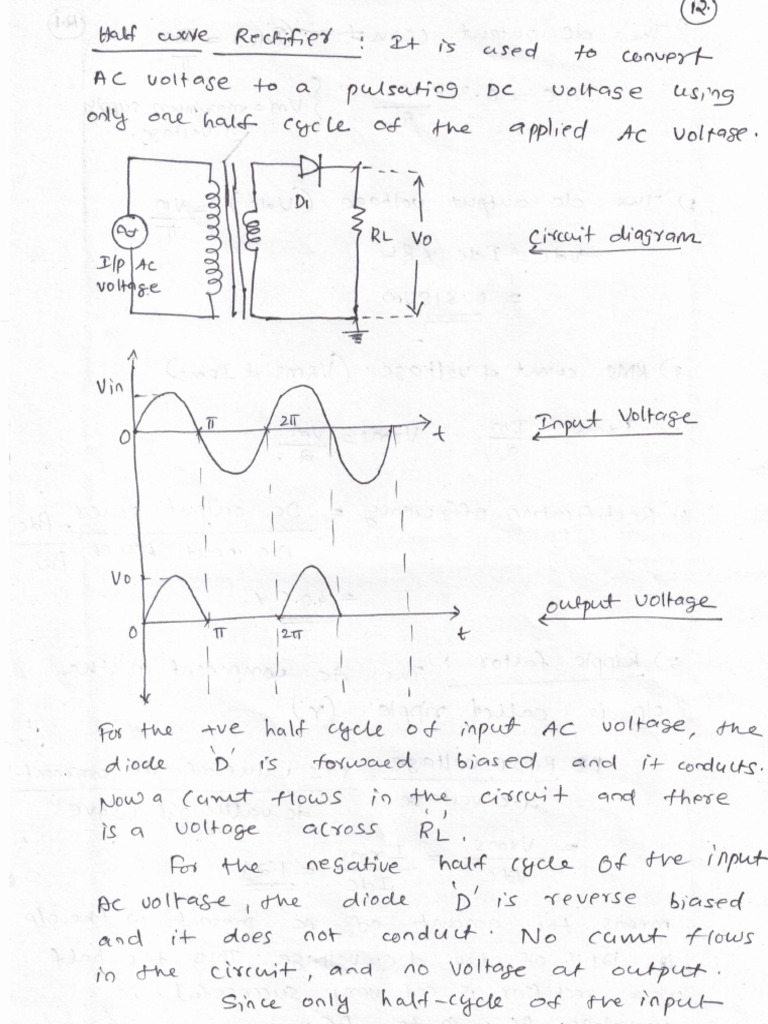 12.
Half wave Rectifier : It is used to convert
AC voltage to a pulsating DC voltage using
only one half cycle of the applied AC voltage.
D1
I/p AC
voltage
RL Vo
Circuit diagram
Vin
0 π 2π t
Input Voltage
Vo
0 π 2π t
output voltage
For the +ve half cycle of input AC voltage, the
diode 'D' is forwaed biased and it conducts.
Now a Curnt flows in the circuit and there
is a voltage across 'RL'.
For the negative half cycle of the input
AC voltage, the diode 'D' is reverse biased
and it does not conduct. No curnt flows
in the circuit, and no voltage at output.
Since only half-cycle of the input